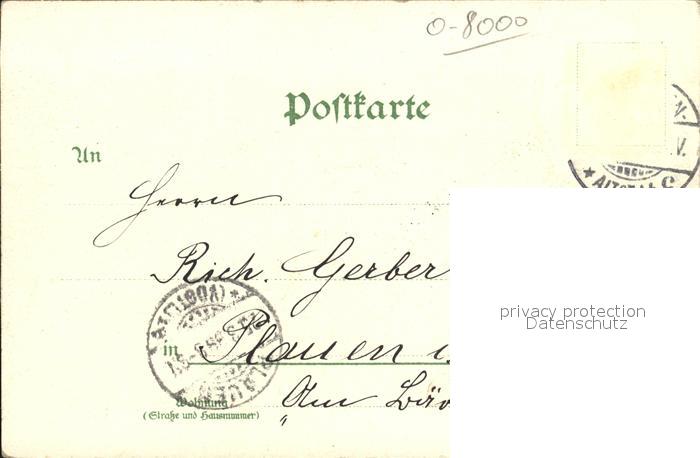 0-8000
Postkarte
An
Herrn
Rich. Gerber
privacy protection
Datenschutz
in Plauen i.
Wohnung
(Straße und Hausnummer)
"Am